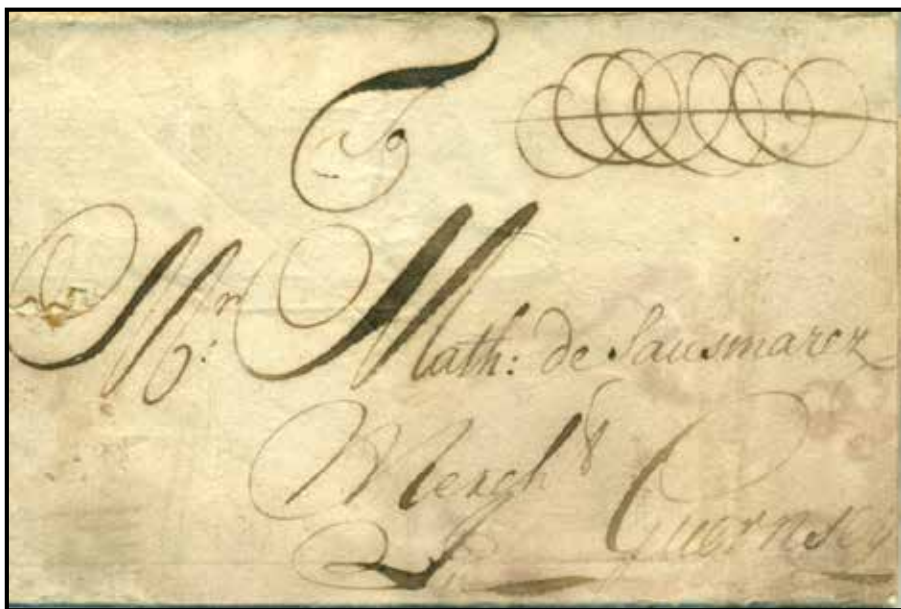 To
Mr: Math: de Sausmarez
Merght Guernsey